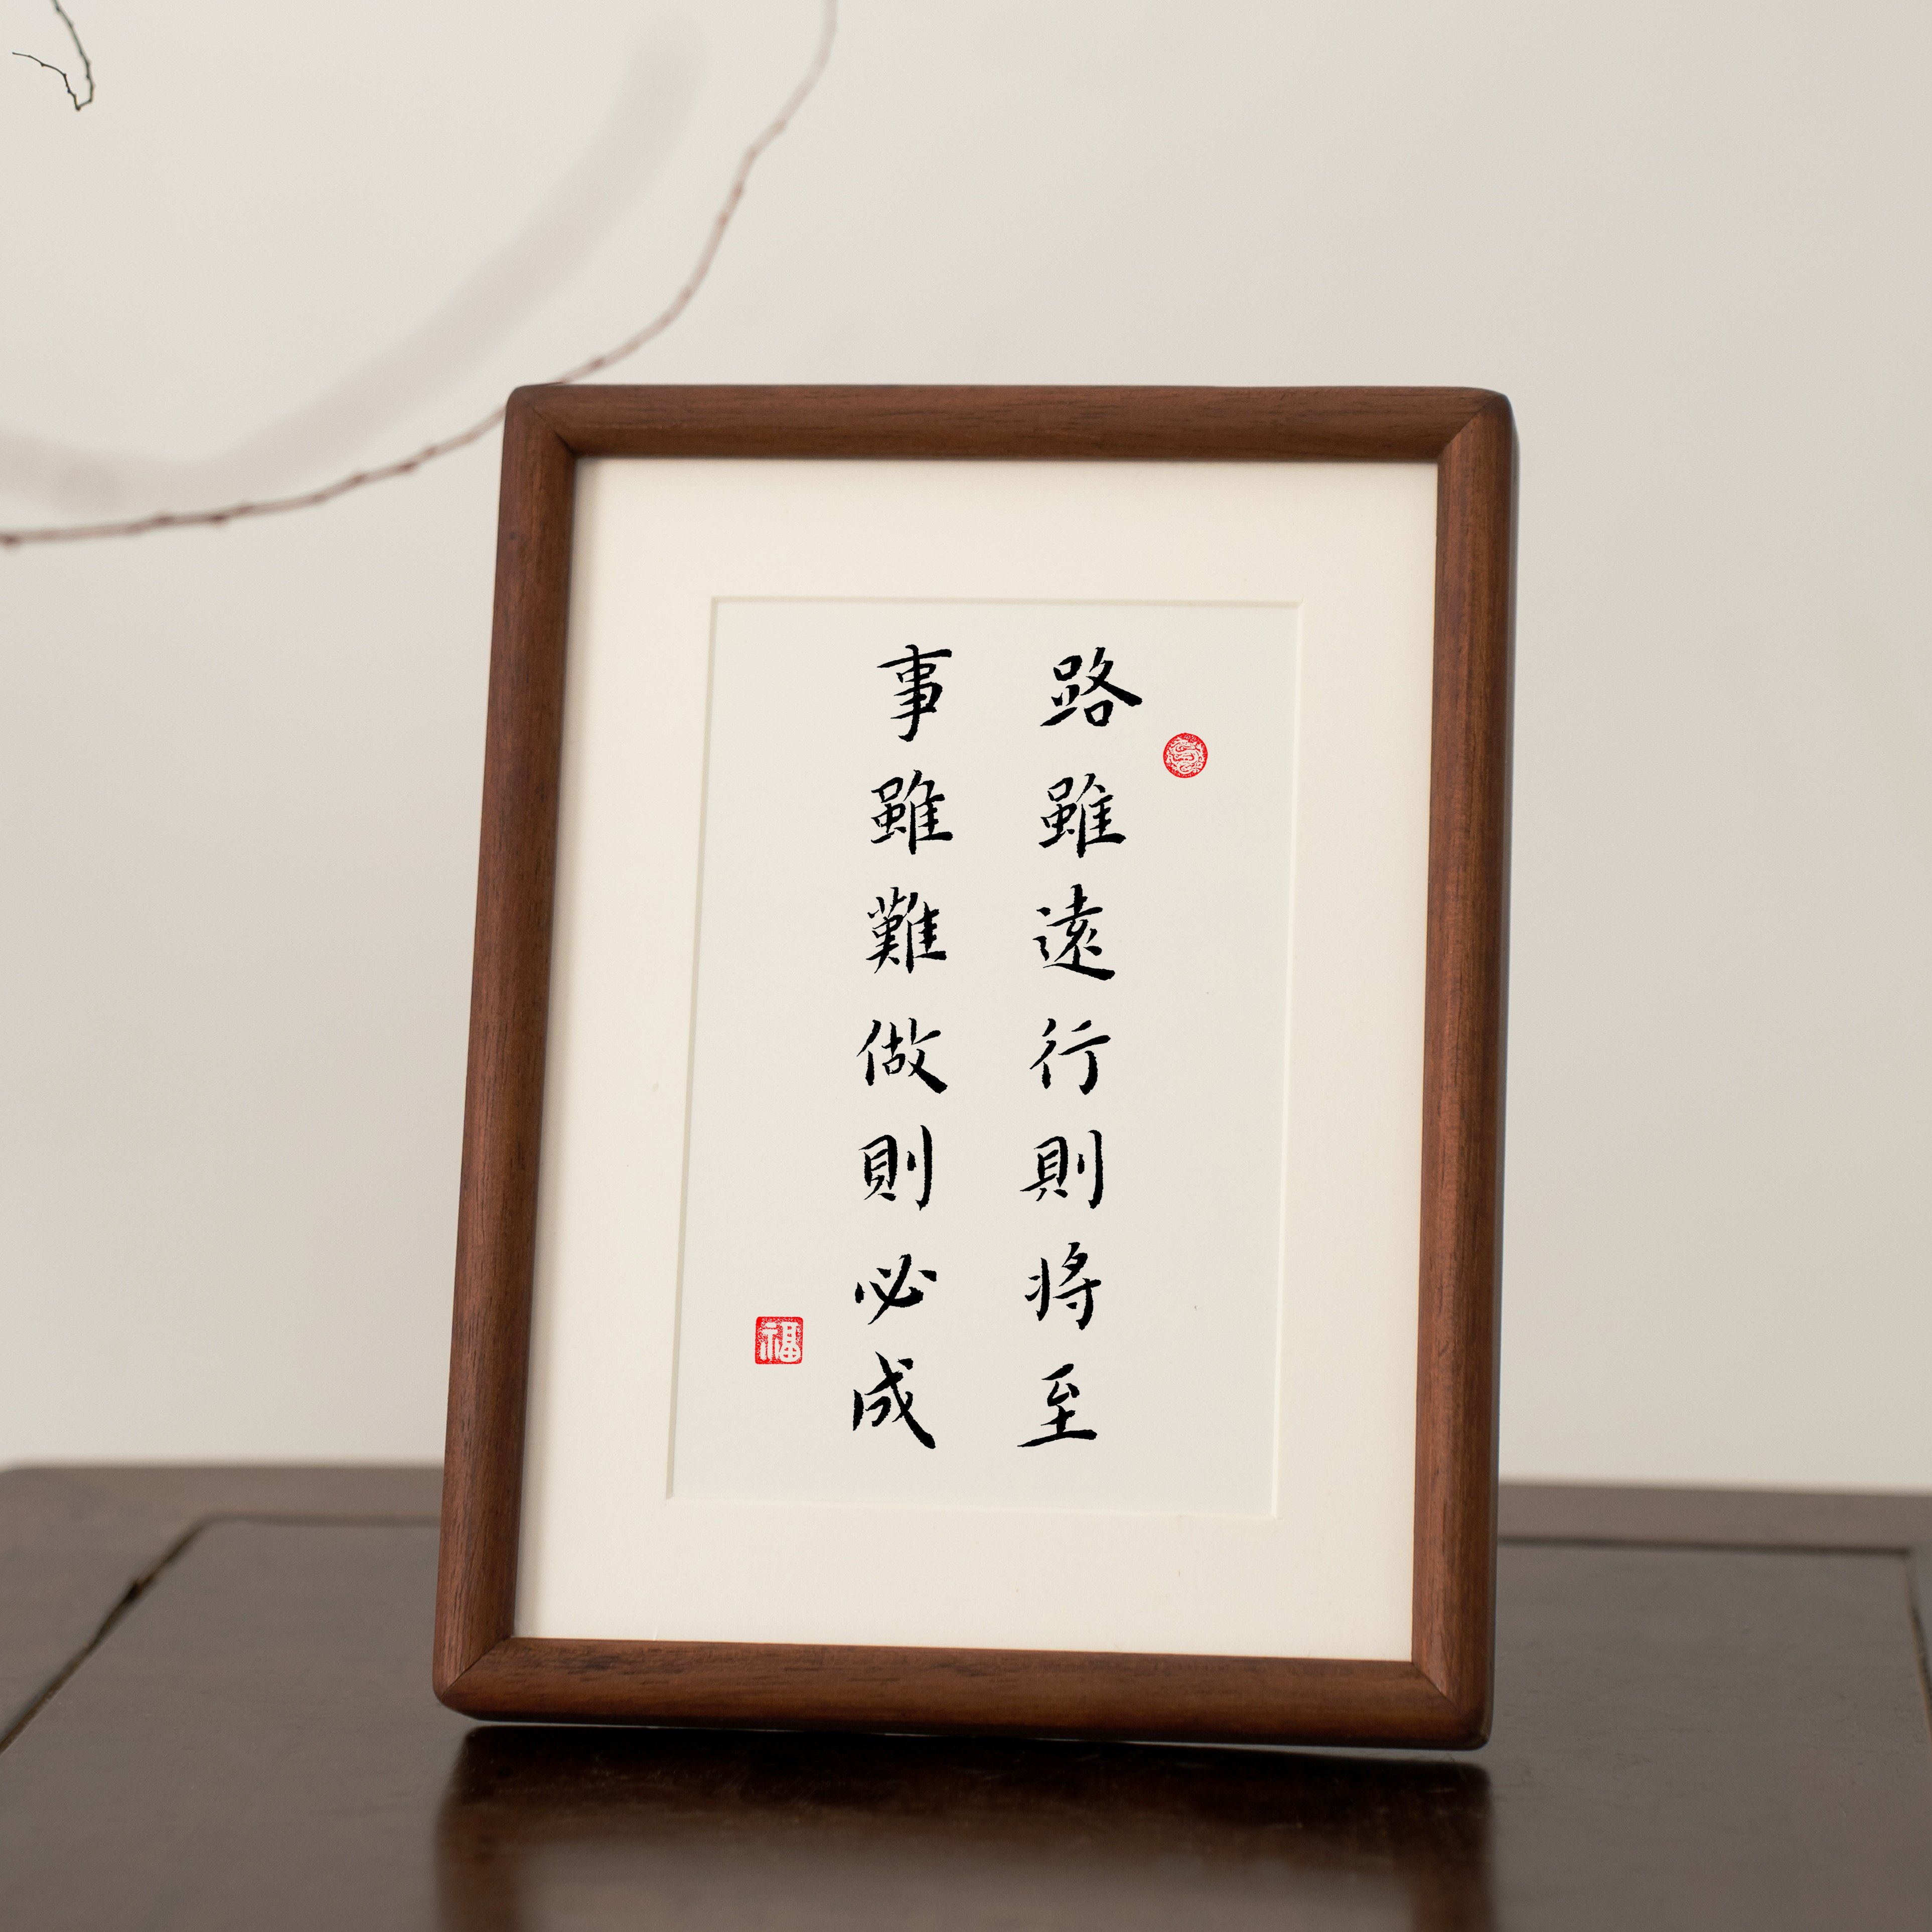 路雖遠行則将至
事雖難做則必成
福